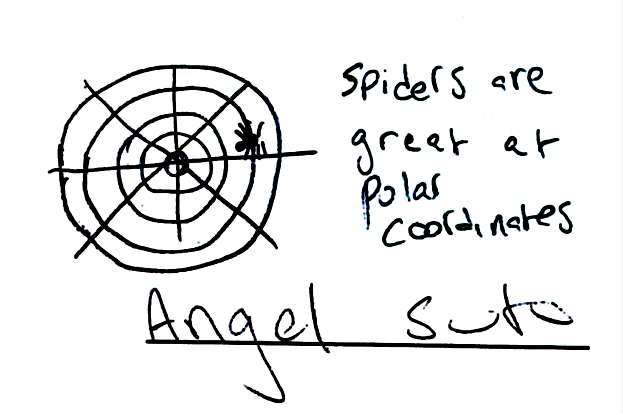 spiders are
great at
polar
coordinates
Angel